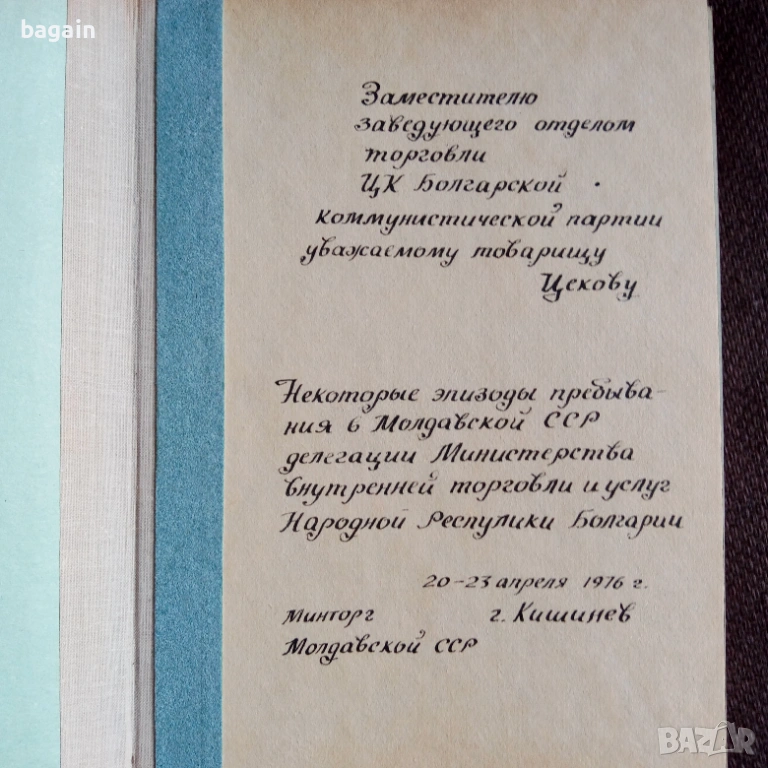 bagain
Заместителю
заведующего отделом
торговли
ЦК Болгарской
коммунистической партии
уважаемому товарищу
Цекову
Некоторые эпизоды пребыва-
ния в Молдавской ССР
делегации Министерства
внутренней торговли и услуг
Народной Республики Болгарии
20-23 апреля 1976 г.
Минторг г. Кишинев
Молдавской ССР
BAZAR